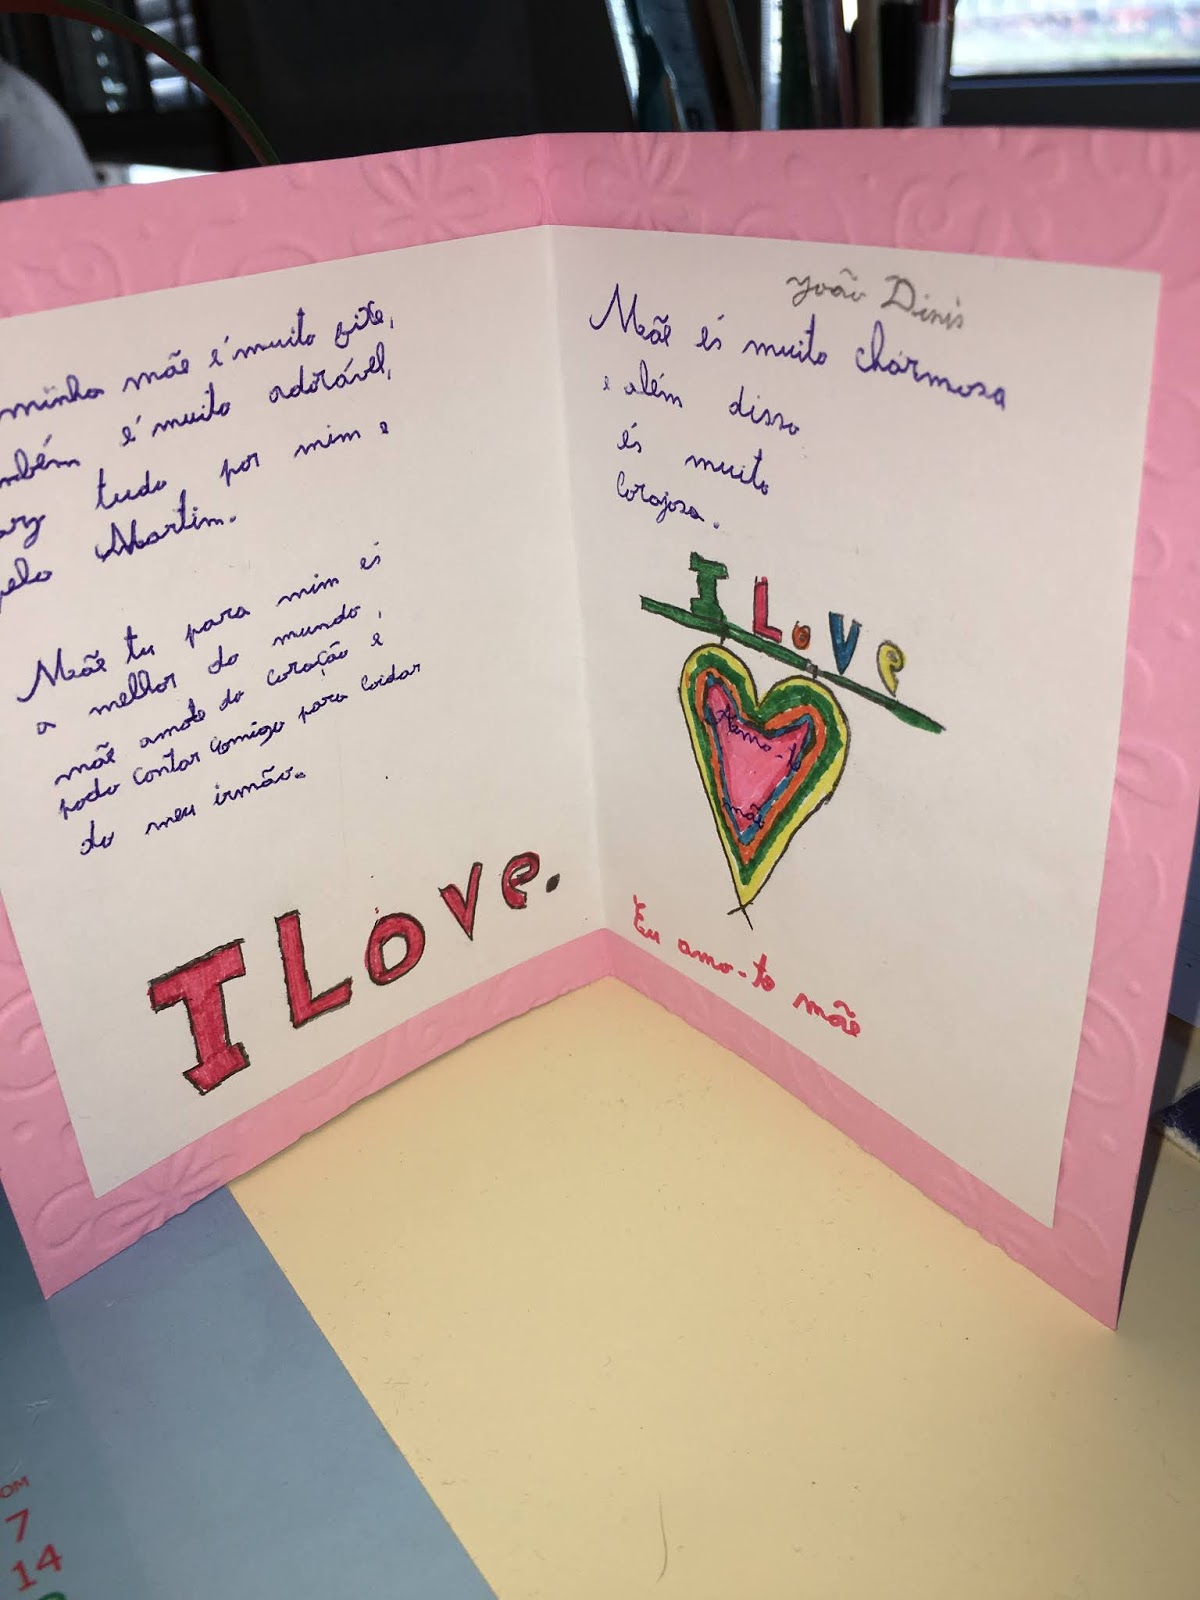 minha mãe é muito fixe,
mbém é muito adorável,
arz tudo por mim e
pelo Martim.
Mãe tu para mim és
a melhor do mundo,
mãe amote do coração e
podo contar comigo para coidar
do meu irmão.
I Love.
João Dinis
Mãe és muito charmosa
e além disso
és muito
corajosa.
I Love
amo-te
mãe
Eu amo-te mãe
OM
7
14